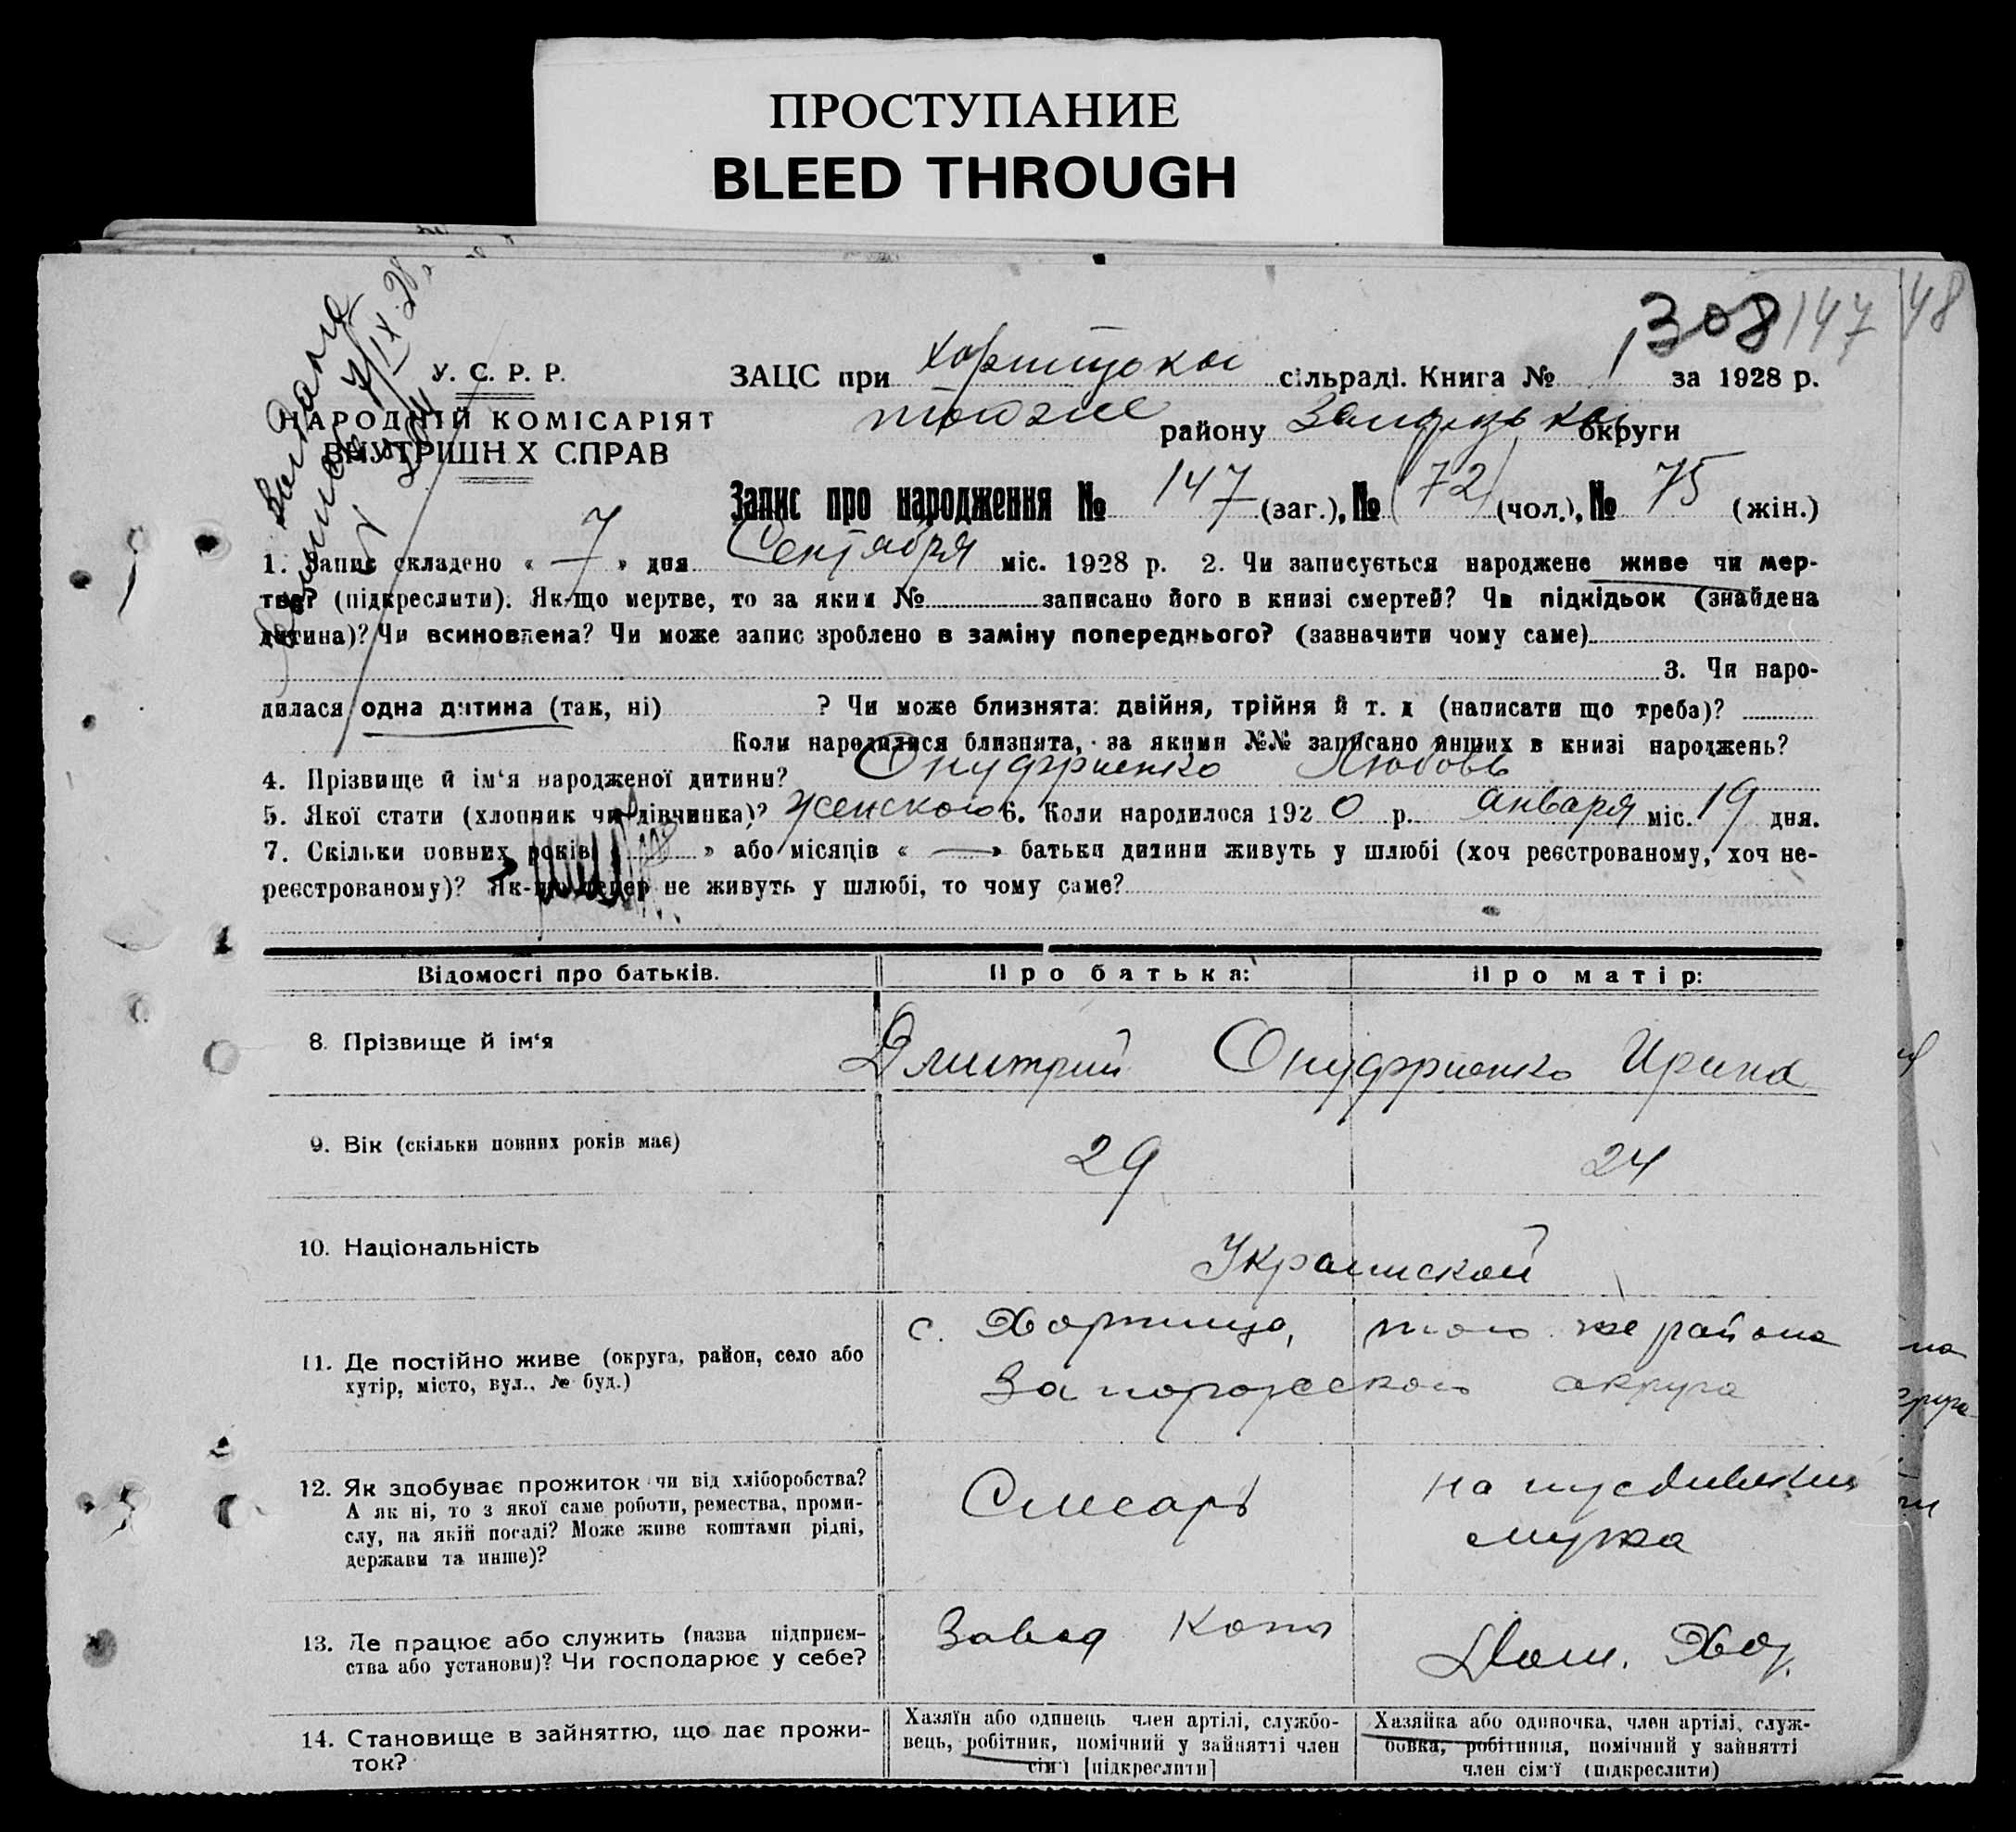 ПРОСТУПАНИЕ
BLEED THROUGH
1308 147 48
У. С. Р. Р.
НАРОДНІЙ КОМІСАРІЯТ
ВНУТРІШНІХ СПРАВ
ЗАЦС при Хортицькой сільраді. Книга № 1 за 1928 р.
району округи
Запис про народження № 147 (заг.), № (72) (чол.), № 75 (жін.)
1. Запис складено « 7 » дня Сентября міс. 1928 р. 2. Чи записується народжене живе чи мер-
тве? (підкреслити). Як-що мертве, то за яким № записано його в книзі смертей? Чи підкідьок (знайдена
дитина)? Чи всиновлена? Чи може запис зроблено в заміну попереднього? (зазначити чому саме)
3. Чи наро-
дилася одна дитина (так, ні) ? Чи може близнята: двійня, трійня й т. д (написати що треба)?
Коли народилися близнята, за якими №№ записано инших в книзі народжень?
4. Прізвище й ім‘я народженої дитини? Онуфриенко Любовь
5. Якої стати (хлопчик чи дівчинка)? женского 6. Коли народилося 1920 р. января міс. 19 дня.
7. Скільки повних років » або місяців « — » батьки дитини живуть у шлюбі (хоч реєстрованому, хоч не-
реєстрованому)? Як-що тепер не живуть у шлюбі, то чому саме?
Відомості про батьків. Про батька: Про матір:
8. Прізвище й ім‘я Дмитрий Онуфриенко Ирина
9. Вік (скільки повних років має) 29 24
10. Національність Украинской
11. Де постійно живе (округа, район, село або
хутір, місто, вул., № буд.)
с. Хортица, того же района
Запорожского округа
12. Як здобуває прожиток чи від хліборобства?
А як ні, то з якої саме роботи, ремества, проми-
слу, на якій посаді? Може живе коштами рідні,
держави та инше)?
Слесарь
на иждивении
мужа
13. Де працює або служить (назва підприєм-
ства або установи)? Чи господарює у себе?
Завод
Дом. Хоз.
14. Становище в зайняттю, що дає прожи-
ток?
Хазяїн або одинець член артілі, службо-
вець, робітник, помічний у зайнятті член
сім‘ї [підкреслити]
Хазяйка або одиночка, член артілі, служ-
бовка, робітниця, помічний у зайнятті
член сім‘ї (підкреслити)